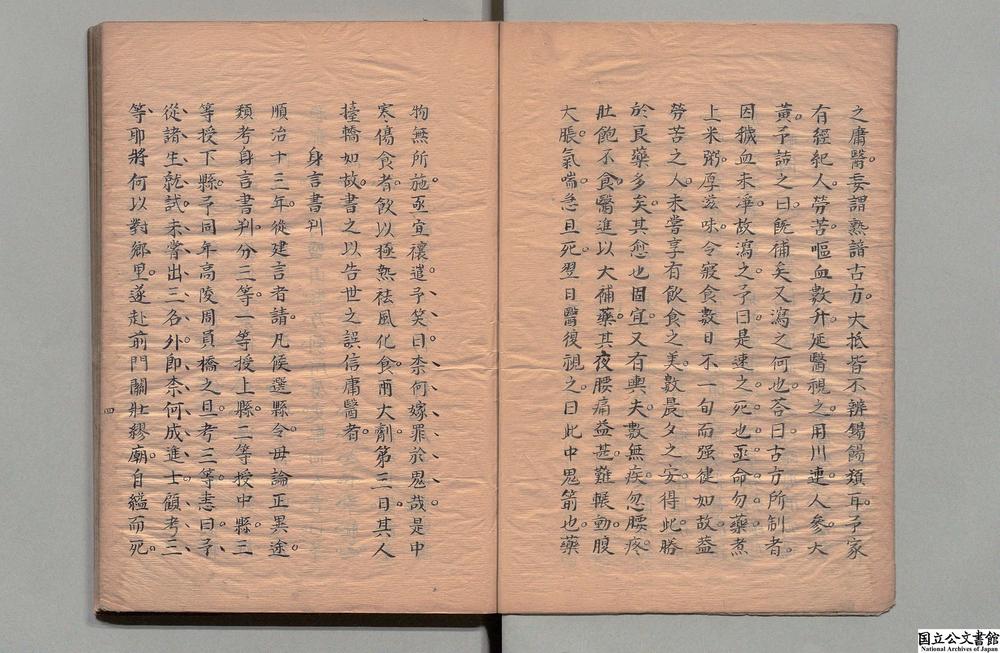 之庸醫妄謂熟諳古方大抵皆不辨錫餳類耳予家
有經紀人勞苦嘔血數升延醫視之用川連人參大
黃予詰之曰既補矣又瀉之何也答曰古方所制者
因穢血未凈故瀉之予曰是速之死也亟命勿藥煮
上米粥厚滋味令寢食數日不一旬而强健如故葢
勞苦之人未嘗享有飲食之美數晨夕之安得此勝
於良藥多矣其愈也固宜又有輿夫數無疾忽腰疼
肚飽不食醫進以大補藥其夜腰痛益甚難輾動腹
大脹氣喘急且死翌日醫復視之曰此中鬼箭也藥
物無所施亟宜禳遣予笑曰柰何嫁罪於鬼哉是中
寒傷食者飲以極熟祛風化食兩大劑第三日其人
擡轎如故書之以告世之誤信庸醫者
身言書判
順治十三年從建言者請凡候選縣令毋論正異途
類考身言書判分三等一等授上縣二等授中縣三
等授下縣予同年高陵周員橋之旦考三等恚曰予
從諸生就試未嘗出三名外即柰何成進士顧考三
等耶將何以對鄉里遂赴前門關壯繆廟自縊而死
四
国立公文書館
National Archives of Japan